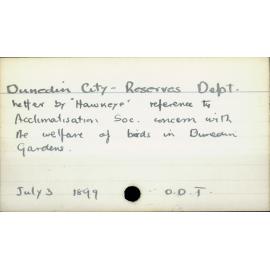 Dunedin City - Reserves Dept.
Letter by "Hawkeye" reference to
Acclimatisation Soc. concern with
the welfare of birds in Dunedin
Gardens.
July 3 1899 O.D.T.